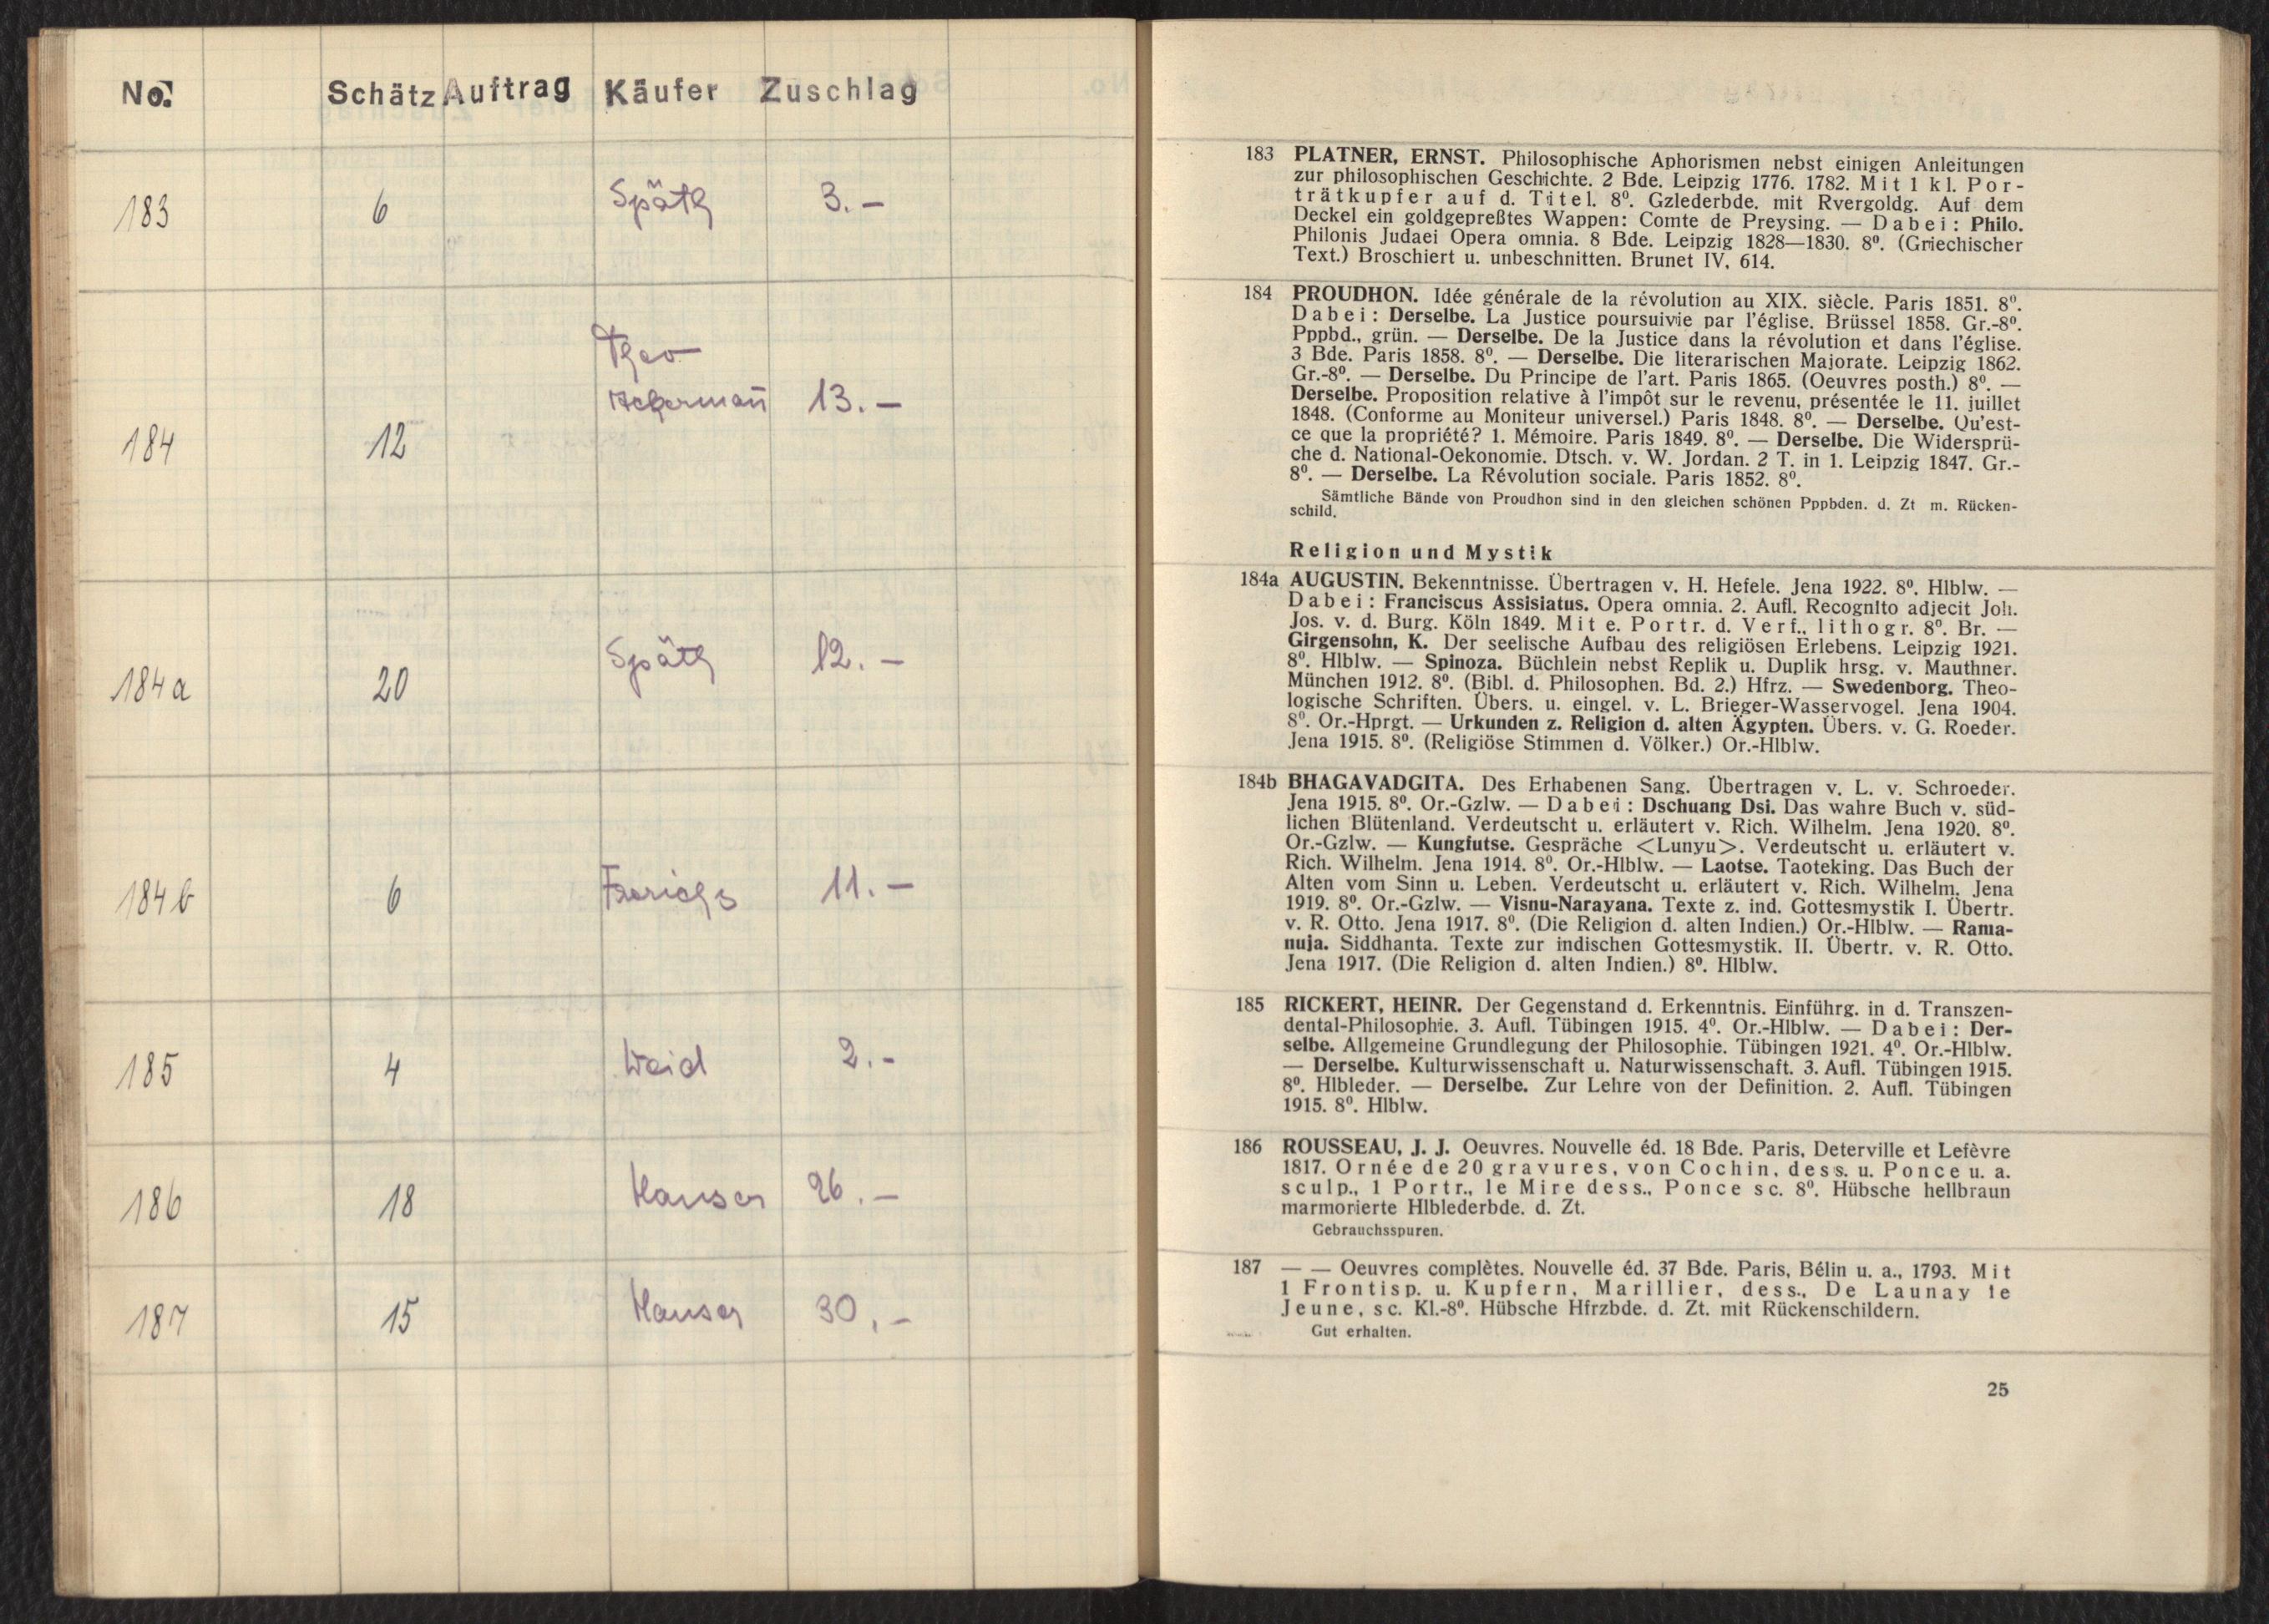 No. Schätz Auftrag Käufer Zuschlag
183 6 Späth 3.–
Theo
Ackermañ 13.–
184 12
Späth 12.–
184a 20
184b 6 Frerichs 11.–
185 4 Weid 2.–
186 18 Hauser 26.–
187 15 Hauser 30.–
183 PLATNER, ERNST. Philosophische Aphorismen nebst einigen Anleitungen
zur philosophischen Geschichte. 2 Bde. Leipzig 1776. 1782. Mit 1 kl. Por-
trätkupfer auf d. Titel. 8⁰. Gzlederbde. mit Rvergoldg. Auf dem
Deckel ein goldgepreßtes Wappen: Comte de Preysing. — Dabei: Philo.
Philonis Judaei Opera omnia. 8 Bde. Leipzig 1828—1830. 8⁰. (Griechischer
Text.) Broschiert u. unbeschnitten. Brunet IV, 614.
184 PROUDHON. Idée générale de la révolution au XIX. siècle. Paris 1851. 8⁰.
Dabei: Derselbe. La Justice poursuivie par l'église. Brüssel 1858. Gr.-8⁰.
Pppbd., grün. — Derselbe. De la Justice dans la révolution et dans l'église.
3 Bde. Paris 1858. 8⁰. — Derselbe. Die literarischen Majorate. Leipzig 1862.
Gr.-8⁰. — Derselbe. Du Principe de l'art. Paris 1865. (Oeuvres posth.) 8⁰. —
Derselbe. Proposition relative à l'impôt sur le revenu, présentée le 11. juillet
1848. (Conforme au Moniteur universel.) Paris 1848. 8⁰. — Derselbe. Qu'est-
ce que la propriété? 1. Mémoire. Paris 1849. 8⁰. — Derselbe. Die Widersprü-
che d. National-Oekonomie. Dtsch. v. W. Jordan. 2 T. in 1. Leipzig 1847. Gr.-
8⁰. — Derselbe. La Révolution sociale. Paris 1852. 8⁰.
Sämtliche Bände von Proudhon sind in den gleichen schönen Pppbden. d. Zt m. Rücken-
schild.
Religion und Mystik
184a AUGUSTIN. Bekenntnisse. Übertragen v. H. Hefele. Jena 1922. 8⁰. Hlblw. —
Dabei: Franciscus Assisiatus. Opera omnia. 2. Aufl. Recognito adjecit Joh.
Jos. v. d. Burg. Köln 1849. Mit e. Portr. d. Verf., lithogr. 8⁰. Br. —
Girgensohn, K. Der seelische Aufbau des religiösen Erlebens. Leipzig 1921.
8⁰. Hlblw. — Spinoza. Büchlein nebst Replik u. Duplik hrsg. v. Mauthner.
München 1912. 8⁰. (Bibl. d. Philosophen. Bd. 2.) Hfrz. — Swedenborg. Theo-
logische Schriften. Übers. u. eingel. v. L. Brieger-Wasservogel. Jena 1904.
8⁰. Or.-Hprgt. — Urkunden z. Religion d. alten Ägypten. Übers. v. G. Roeder.
Jena 1915. 8⁰. (Religiöse Stimmen d. Völker.) Or.-Hlblw.
184b BHAGAVADGITA. Des Erhabenen Sang. Übertragen v. L. v. Schroeder.
Jena 1915. 8⁰. Or.-Gzlw. — Dabei: Dschuang Dsi. Das wahre Buch v. süd-
lichen Blütenland. Verdeutscht u. erläutert v. Rich. Wilhelm. Jena 1920. 8⁰.
Or.-Gzlw. — Kungfutse. Gespräche <Lunyu>. Verdeutscht u. erläutert v.
Rich. Wilhelm. Jena 1914. 8⁰. Or.-Hlblw. — Laotse. Taoteking. Das Buch der
Alten vom Sinn u. Leben. Verdeutscht u. erläutert v. Rich. Wilhelm. Jena
1919. 8⁰. Or.-Gzlw. — Visnu-Narayana. Texte z. ind. Gottesmystik I. Übertr.
v. R. Otto. Jena 1917. 8⁰. (Die Religion d. alten Indien.) Or.-Hlblw. — Rama-
nuja. Siddhanta. Texte zur indischen Gottesmystik. II. Übertr. v. R. Otto.
Jena 1917. (Die Religion d. alten Indien.) 8⁰. Hlblw.
185 RICKERT, HEINR. Der Gegenstand d. Erkenntnis. Einführg. in d. Transzen-
dental-Philosophie. 3. Aufl. Tübingen 1915. 4⁰. Or.-Hlblw. — Dabei: Der-
selbe. Allgemeine Grundlegung der Philosophie. Tübingen 1921. 4⁰. Or.-Hlblw.
— Derselbe. Kulturwissenschaft u. Naturwissenschaft. 3. Aufl. Tübingen 1915.
8⁰. Hlbleder. — Derselbe. Zur Lehre von der Definition. 2. Aufl. Tübingen
1915. 8⁰. Hlblw.
186 ROUSSEAU, J. J. Oeuvres. Nouvelle éd. 18 Bde. Paris, Deterville et Lefèvre
1817. Ornée de 20 gravures, von Cochin, dess. u. Ponce u. a.
sculp., 1 Portr., le Mire dess., Ponce sc. 8⁰. Hübsche hellbraun
marmorierte Hlblederbde. d. Zt.
Gebrauchsspuren.
187 — — Oeuvres complètes. Nouvelle éd. 37 Bde. Paris, Bélin u. a., 1793. Mit
1 Frontisp. u. Kupfern, Marillier, dess., De Launay le
Jeune, sc. Kl.-8⁰. Hübsche Hfrzbde. d. Zt. mit Rückenschildern.
Gut erhalten.
25